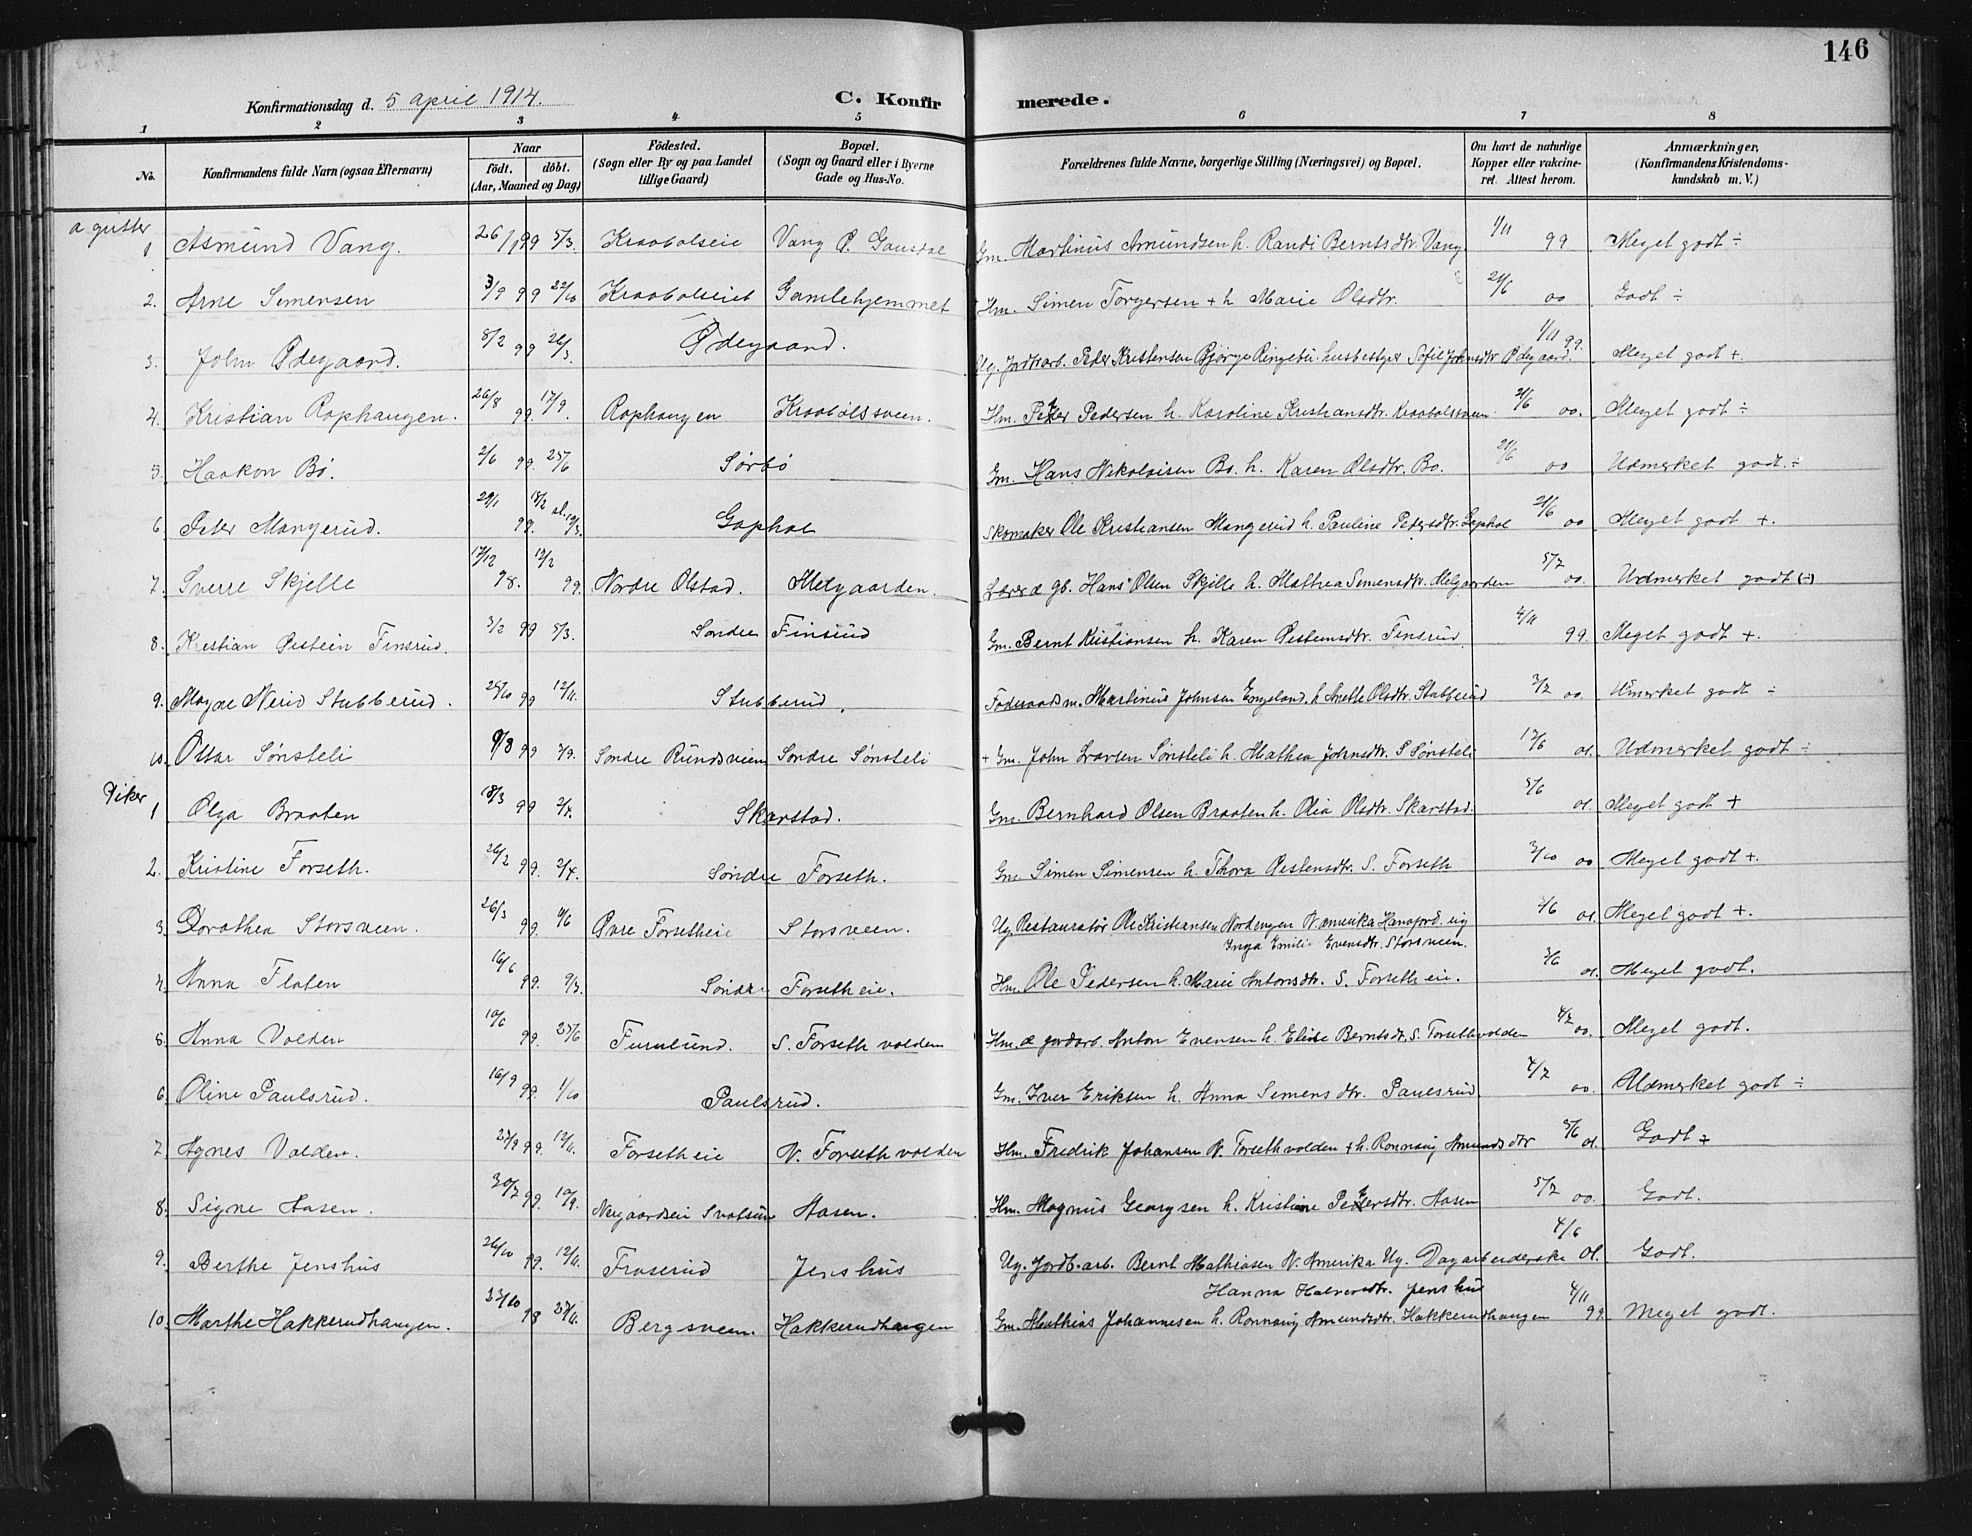 146
Konfirmationsdag d. 5 april 1914. C. Konfirmerede.
1 2 3 4 5 6 7 8
No. Konfirmandens fulde Navn (ogsaa Efternavn) Naar født. døbt. (Aar, Maaned og Dag) Fødested. (Sogn eller By og paa Landet tillige Gaard) Bopæl. (Sogn og Gaard eller i Byerne Gade og Hus-No. Forældrenes fulde Navne, borgerlige Stilling (Næringsvei) og Bopæl. Om havt de naturlige Kopper eller vakcineret. Attest herom. Anmærkninger, (Konfirmandens Kristendomskundskab m. V.)
a gutter
1 Asmund Vang. 26/1 99 5/3. Kraabølseie Vang Ø. Gausdal Gm. Martinus Amundsen h. Randi Berntsdtr. Vang 1/11 99. Meget godt ÷
2. Arne Simensen 3/9 99 22/10 Kraabølseiet Gamlehjemmet Hm. Simen Torgersen + h Marie Olsdtr. 21/6 00 Godt ÷
3. John Ødegaard. 8/2 99 26/3. Ødegaard. Ug. Jordarb. Peder Kristensen Bjørge Ringebu. husbestyer Sofie Johnsdtr Ødegaard. 1/11 99. Meget godt +.
4. Kristian Rophaugen. 26/8 99. 17/9. Rophaugen Kraabølssveen. Hm. Peder Pedersen h. Karoline Kristiansdtr. Kraabølssveen 21/6 00. Meget godt ÷
5. Haakon Bø. 2/6 99. 25/6 Sørbø Gm. Hans Nikolaisen Bø. h. Karen Olsdtr. Bø. 21/6 00 Udmerket godt. ÷
6. Peter Mangerud. 29/1 99. 18/2 st. 19/3. Gaphol Skomaker Ole Kristiansen Mangerud h. Pauline Pedersdtr. Gaphol 21/6 00 Meget godt +.
7. Sverre Skjelle 17/12 98. 12/2 99. Nordre Olstad. Melgaarden. Lærer & gb. Hans Olsen Skjelle h. Mathea Simensdtr. Melgaarden 5/7 00. Udmerket godt (÷)
8. Kristian Østein Finsrud. 3/2 99 5/3. Søndre Finsrud Gm. Bernt Kristiansen h. Karen Østensdtr. Finsrud. 4/11 99. Meget godt +.
9. Magne Nerid Stubberud. 25/10 99 12/11. Stubberud. Føderaadsm. Martinus Johnsen Engeland. h Anette Olsdtr. Stubberud 3/7 00. Udmerket godt ÷
10. Ottar Sønsteli 9/8 99 3/9. Søndre Rundsveen Søndre Sønsteli + Gm. John Larsen Sønsteli h. Mathea Johnsdtr. S Sønsteli 12/6 01. Udmerket godt ÷
Piker
1 Olga Braaten 18/3 99 2/4. Skarstad. Gm. Bernhard Olsen Braaten h. Olia Olsdtr. Skarstad. 5/6 01. Meget godt +
2. Kristine Forseth. 26/2 99. 2/4. Søndre Forseth. Gm Simen Simensen h. Thora Østensdtr. S. Forseth 3/10 00 Meget godt +.
3. Dorothea Storsveen. 26/3 99. 4/6 Øvre Forsetheie Storsveen. Ug. Restauratør Ole Kristiansen Nordengen N. Amerika Hanaford. ug Inga Emilie Evensdtr. Storsveen. 4/6 01. Meget godt +.
4. Anna Floten 16/6 99. 9/7. Søndre Forsetheie. Hm. Ole Pedersen h. Marie Antonsdtr. S. Forsetheie. 3/6 01. Meget godt.
5. Anna Volden 10/6 99. 25/6 Furulund. S. Forsethvolden Hm. & jordarb. Anton Evensen h. Elise Berntsdtr. S. Forsethvolden 4/7 00. Meget godt.
6. Oline Paulsrud. 16/9 99. 1/10 Paulsrud. Gm. Iver Eriksen h. Anna Simensdtr. Paulsrud. 4/7 00. Udmerket godt ÷
7. Agnes Volden. 23/9 99. 12/11. Forsetheie N. Forsethvolden Hm. Fredrik Johansen N. Forsethvolden + h. Rønnaug Amundsdtr 5/6 01. Godt ÷
8. Signe Aasen. 30/7 99. 10/9. Nergaardseie Svatsum Aasen. Hm. Magnus Georgsen h. Kristine Pedersdtr. Aasen 5/7 00. Godt.
9. Berthe Jenshus 26/10 99. 12/11. Froserud Jenshus Ug. Jordb. arb. Bernt Mathiasen N. Amerika Ug. Dagarbeiderske Hanna Halvorsdtr. Jenshus 4/6 01. Godt.
10. Marthe Hakkerudhaugen. 23/10 98 27/11. Bergsveen. Hakkerudhaugen Gm. Mathias Johannesen h. Rønnaug Amundsdtr. Hakkerudhaugen 4/11 99. Meget godt.